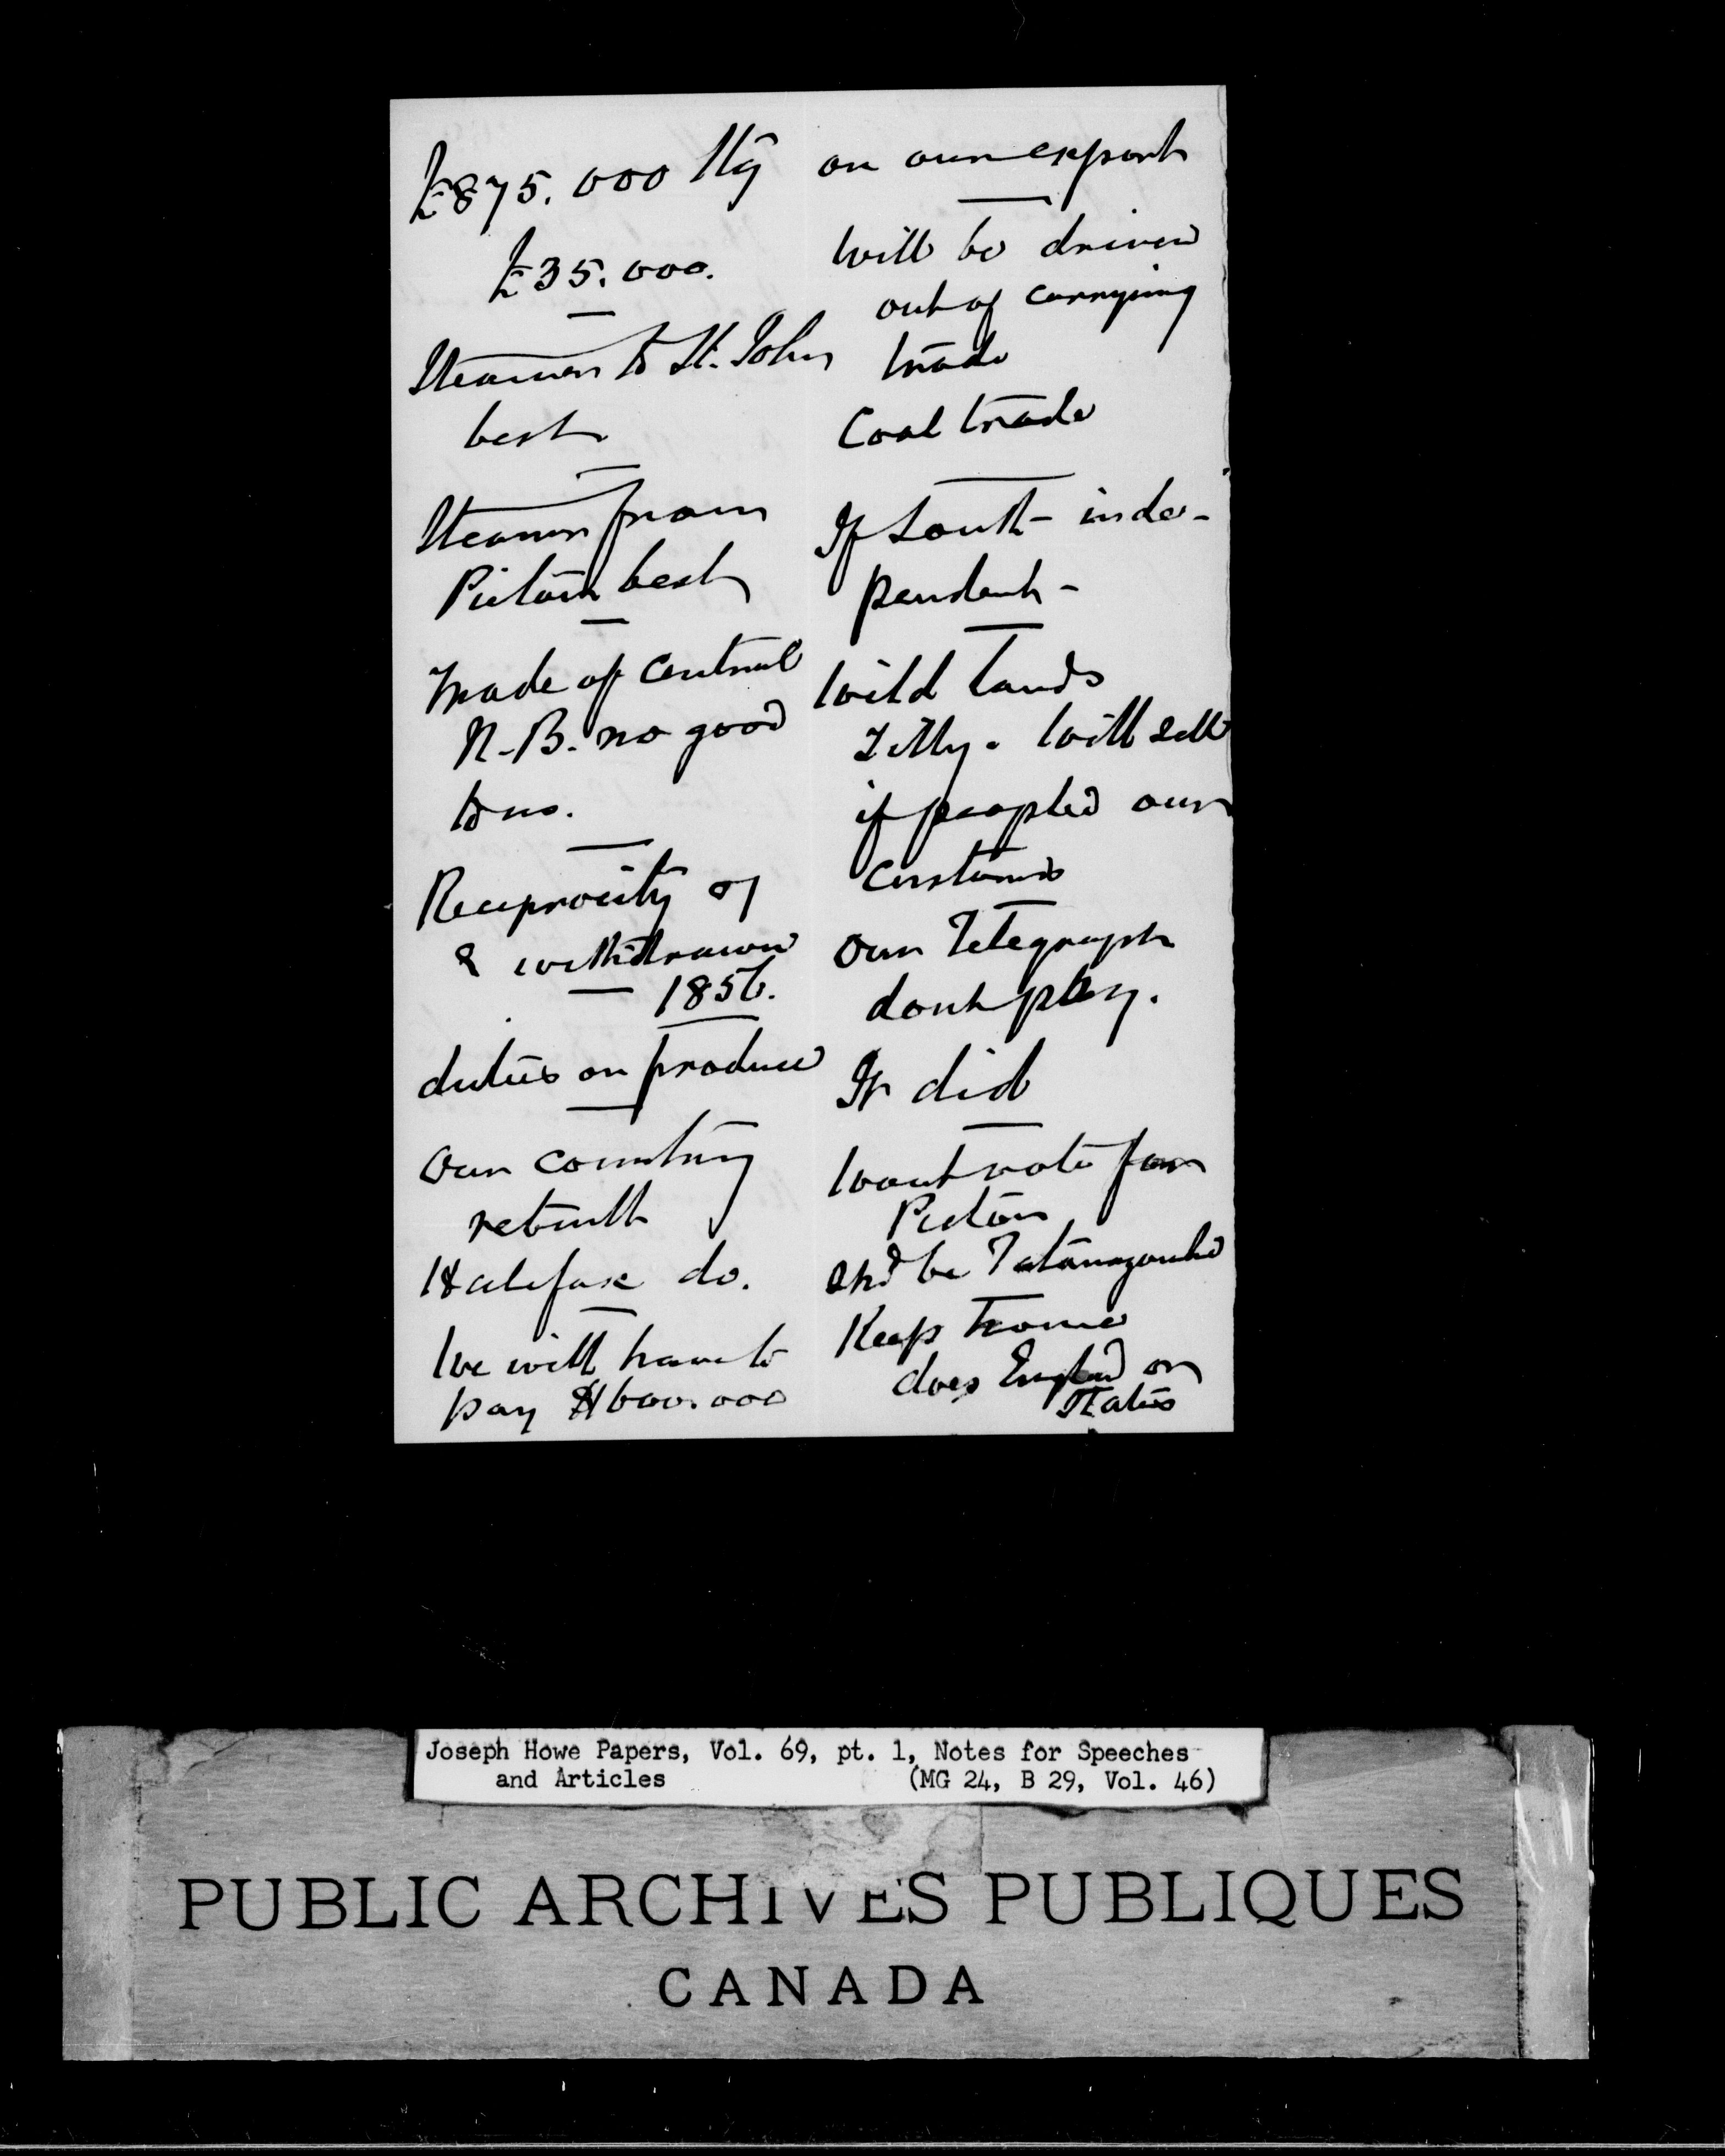 £875.000 Stg
£35.000.
Steamer to St. John
best
Steamer from
Pictou best
Trade of Central
N.B. no good
to us.
Reciprocity of
& withdrawn
1856.
duties on produce
Our country
rebuilt
Halifax do.
We will have to
pay $1600.000
on our exports
Will be driven
out of carrying
trade
Coal trade
If South - inde-
pendent -
Wild lands
Tilly. Will sell
if peopled our
customs
Our Telegraph
dont pay.
It did
Wont vote for
Pictou
shd be Tatamagouche
Keep Home
does England or
States
Joseph Howe Papers, Vol. 69, pt. 1, Notes for Speeches
and Articles (MG 24, B 29, Vol. 46)
PUBLIC ARCHIVES PUBLIQUES
CANADA